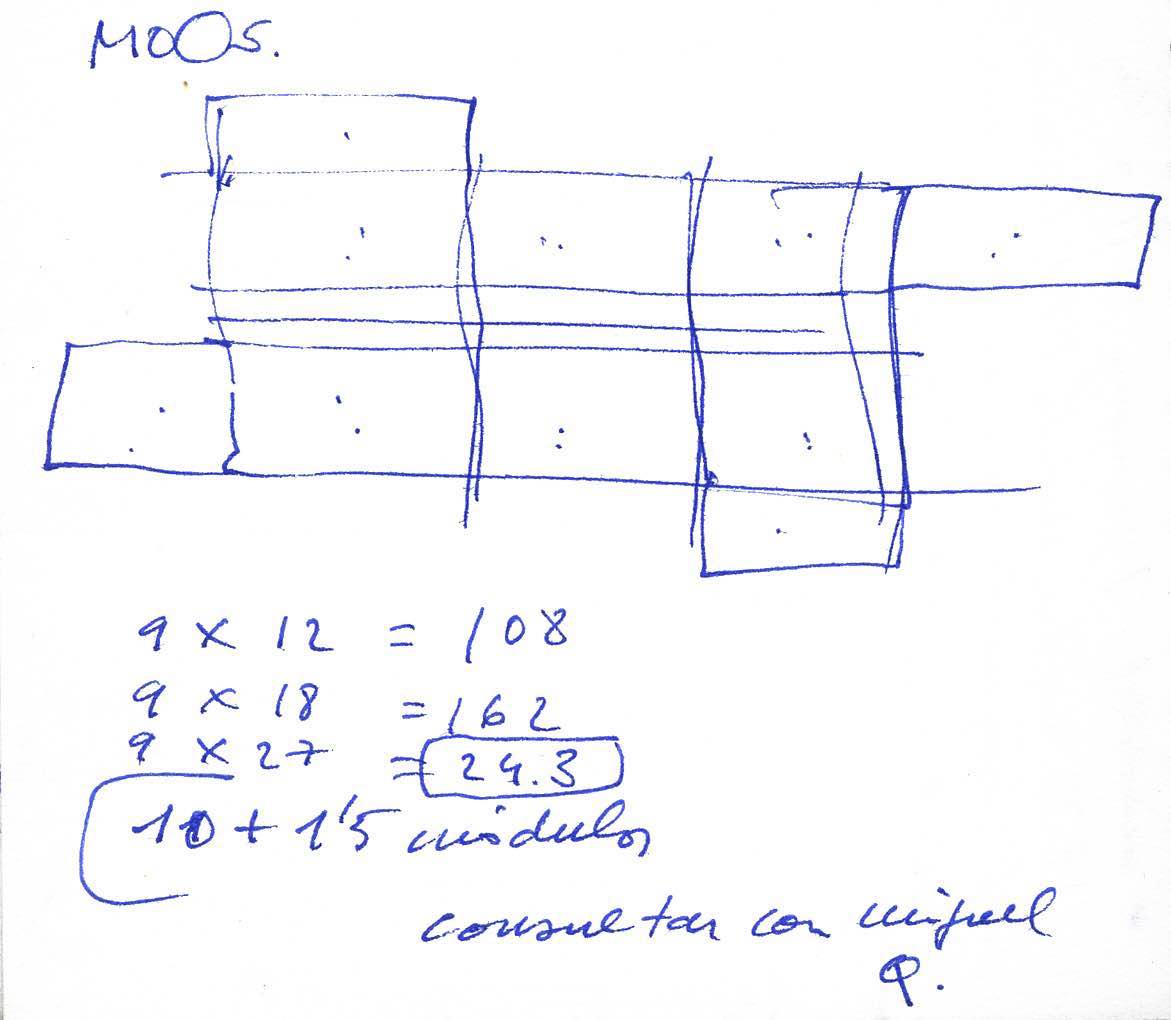 MOOS.
9 x 12 = 108
9 x 18 = 162
9 x 27 = 24.3
10 + 1'5 módulos
consultar con miguel
Q.